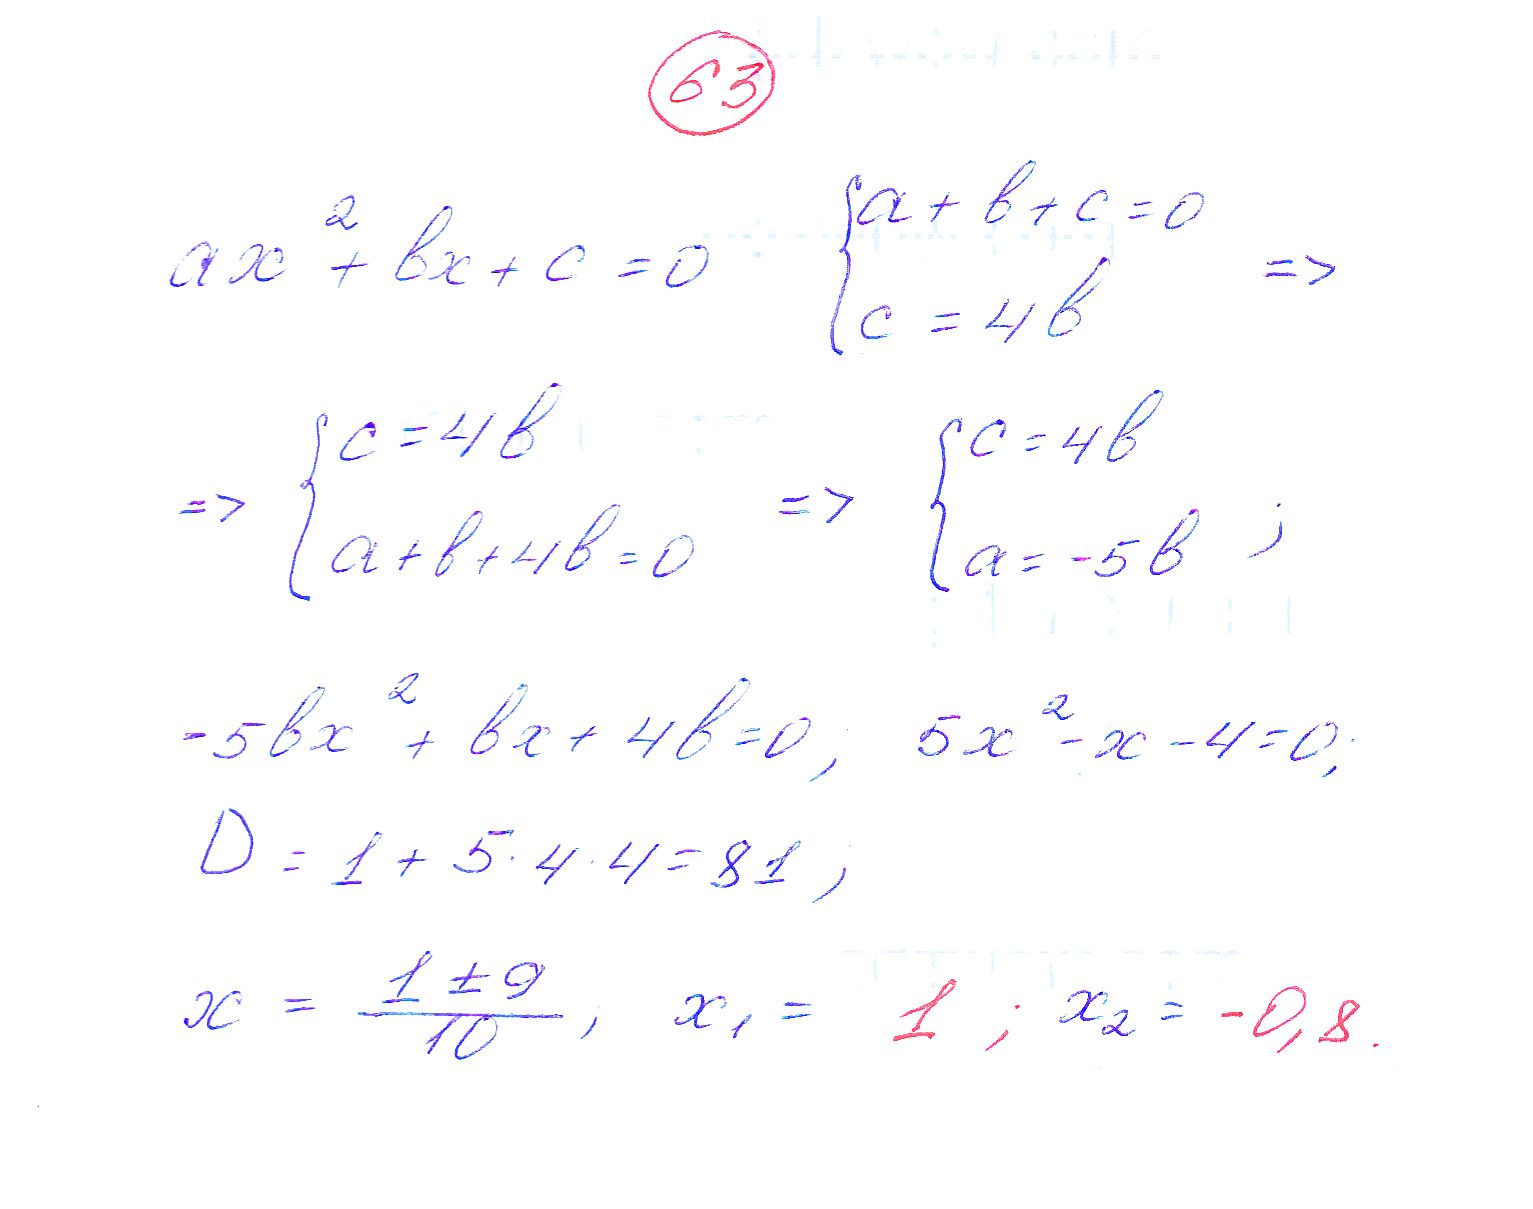 63
ax² + bx + c = 0 { a + b + c = 0
c = 4b =>
=> { c = 4b
a + b + 4b = 0 => { c = 4b
a = -5b ;
-5bx² + bx + 4b = 0; 5x² - x - 4 = 0;
D = 1 + 5·4·4 = 81;
x = (1 ± 9)/10; x₁ = 1; x₂ = -0,8.